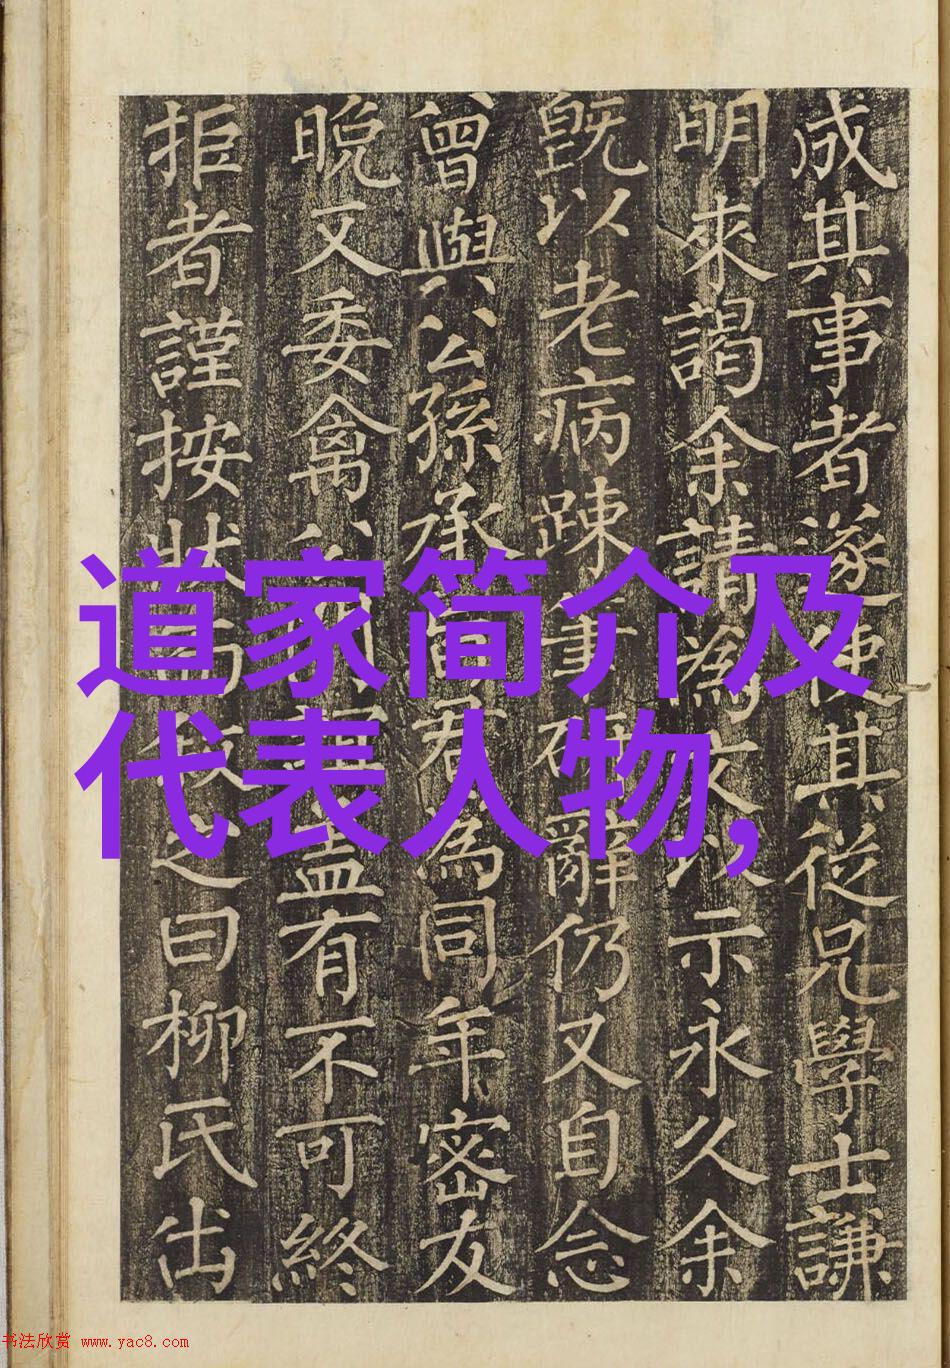 道家简介及
代表人物,
成其事者遂使其從兄學士謙
明來謁余請為文以示永久余
既以老病踈筆研辭仍又自念
曾與公孫承君為同年密友
晚又委禽盖有不可終
拒者謹按状而叙之曰柳氏出
书法欣赏 www.yac8.com